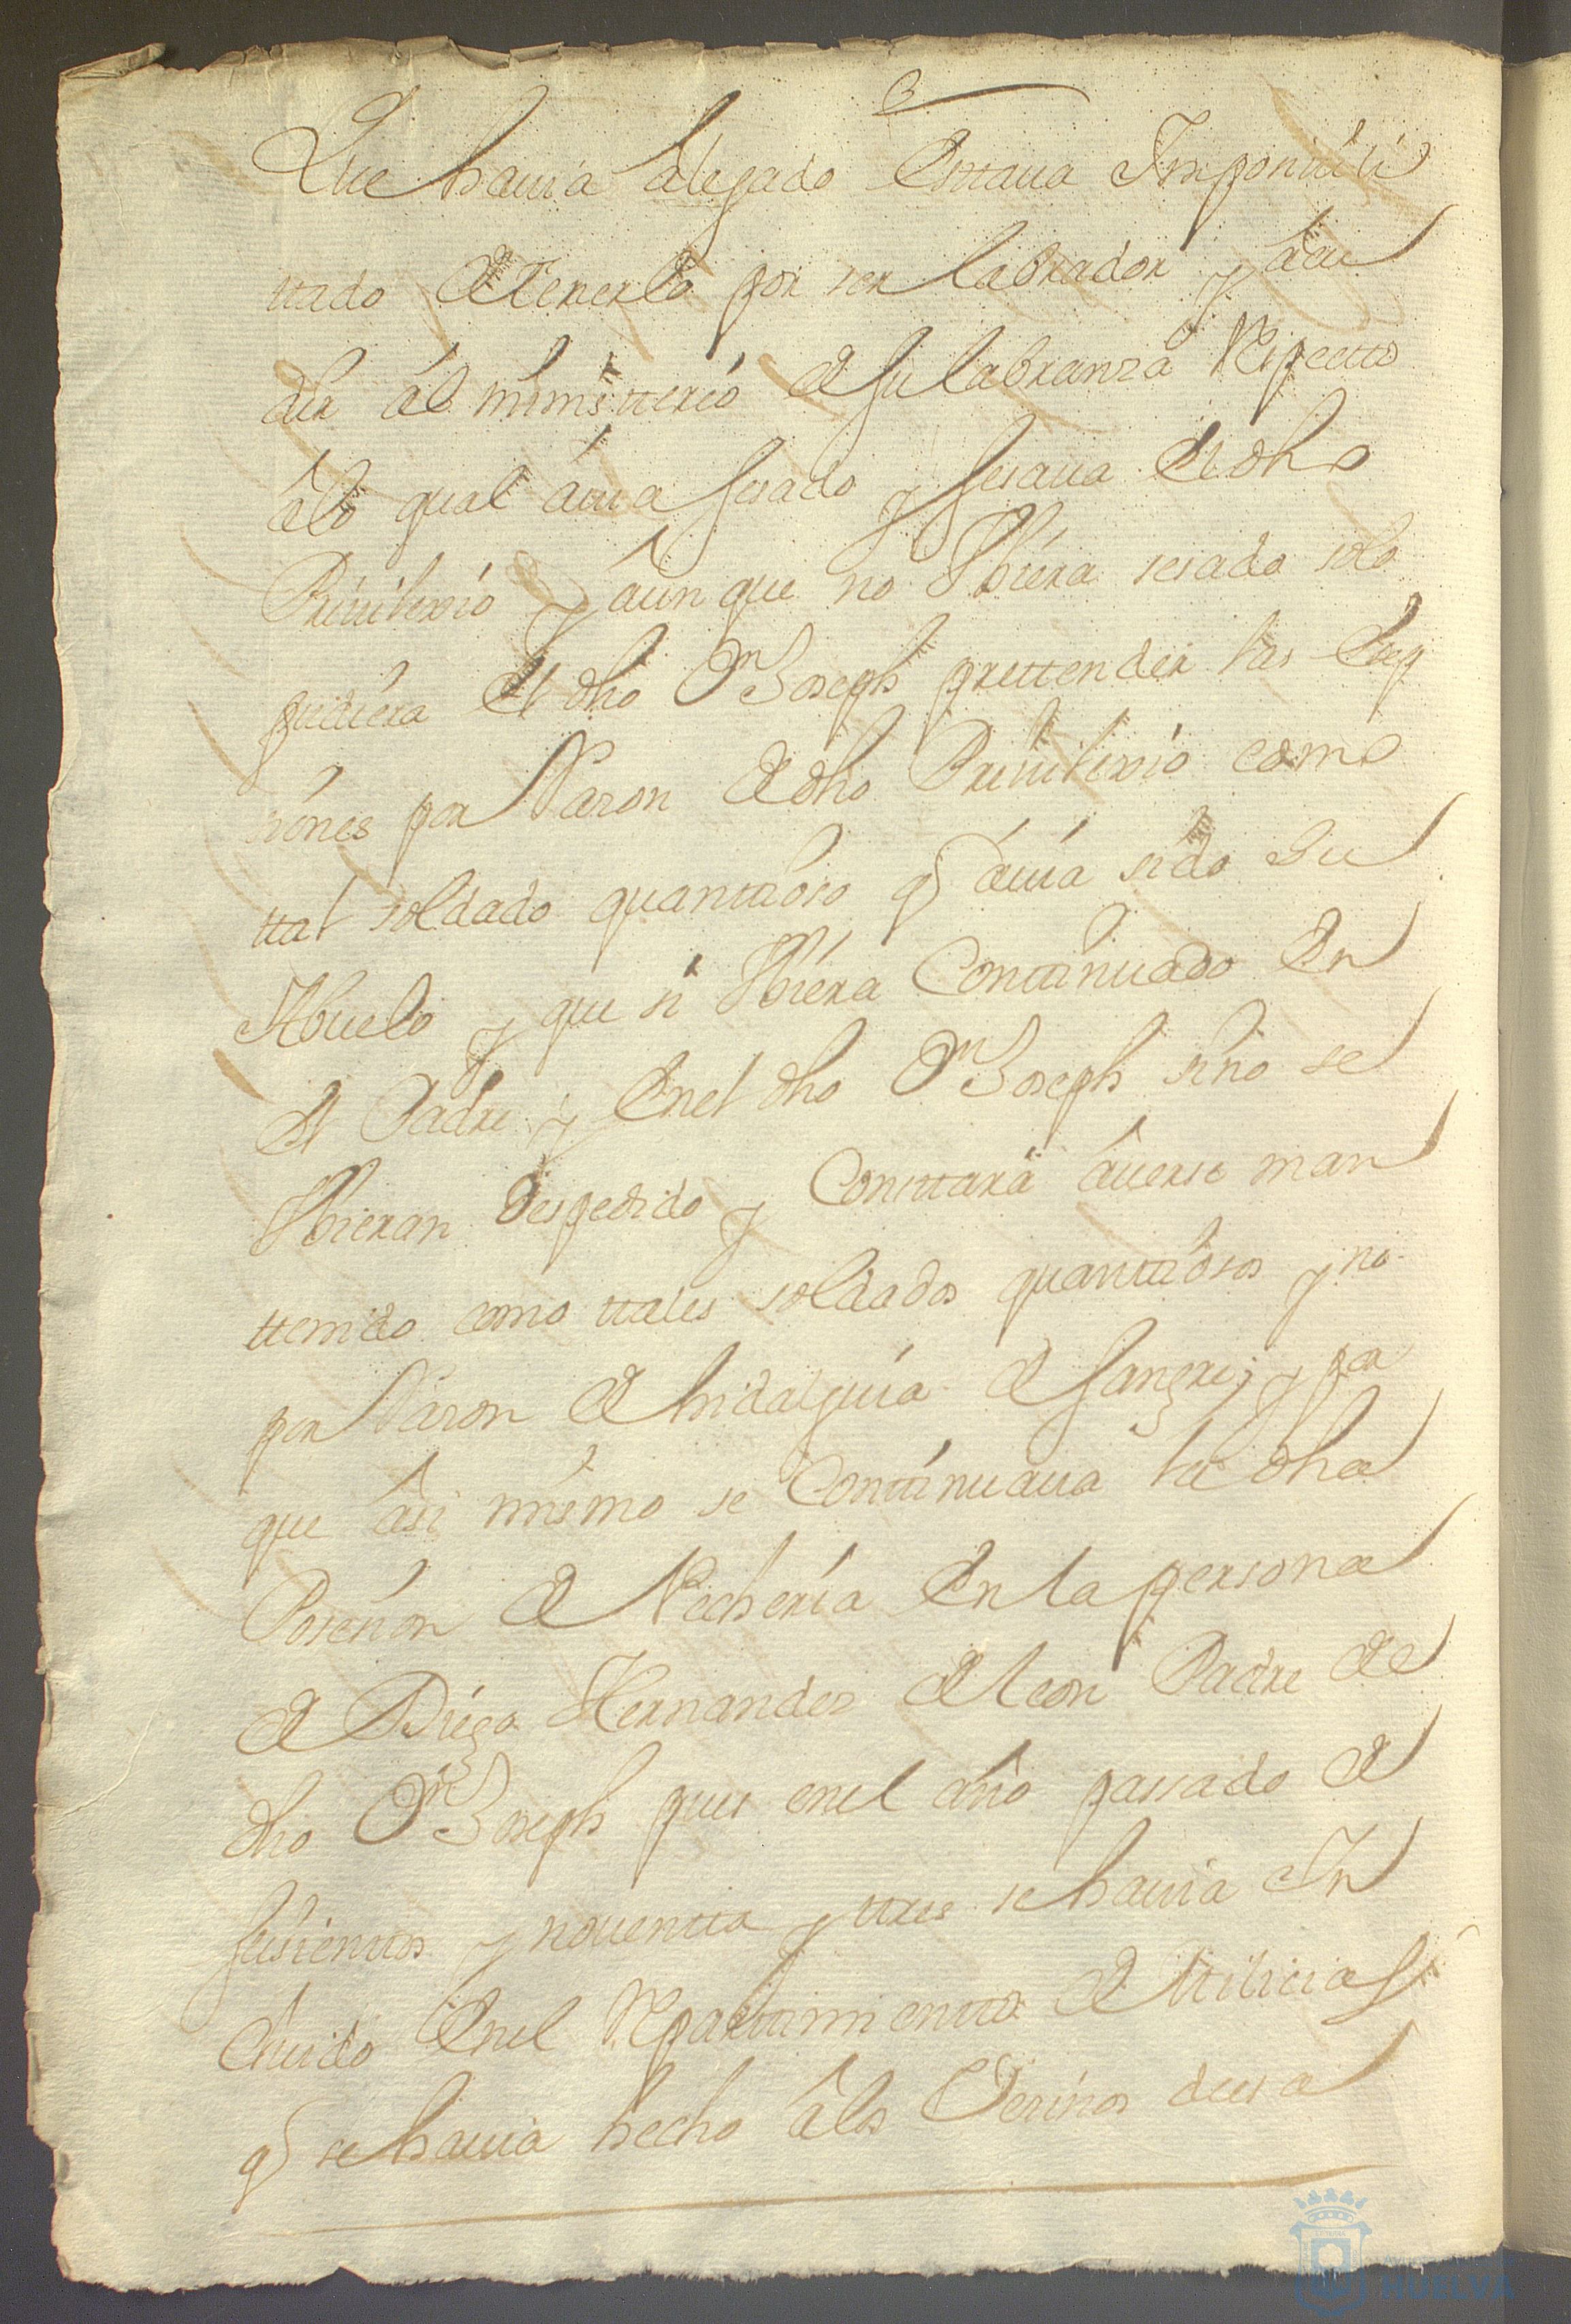 Que hauia alegado Esttaua Imposiuili
ttado de tenerlo por ser labrador y acu
dir al ministterio de su labranza Respectto
a lo qual auia sesado y sesaua el dho
Priuilexio y aunque no Vbiera sesado solo
pudiera el dho Dn Joseph prettender las Exep
ziones por Razon de dho Priuilexio como
ttal soldado quanttioso q auia sido Su
Abuelo y que si Vbiera Conttinuado En
El Padre y En el dho Dn Joseph sino se
Vbieran despedido y Consttara auerse man
ttenido como ttales soldados quanttiosos y no
por Razon de hidalguia de Sangre; y por
que asi mismo se Conttinuaua la dha
Posesion de Pecheria En la persona
de Diego Hernandez de leon Padre de
dho Dn Joseph pues en el año passado de
seisienttos y nouentta y ttres se hauia In
cluido En el Reparttimientto de Milicias
q se hauia hecho a los Vezinos de esa
HUELVA